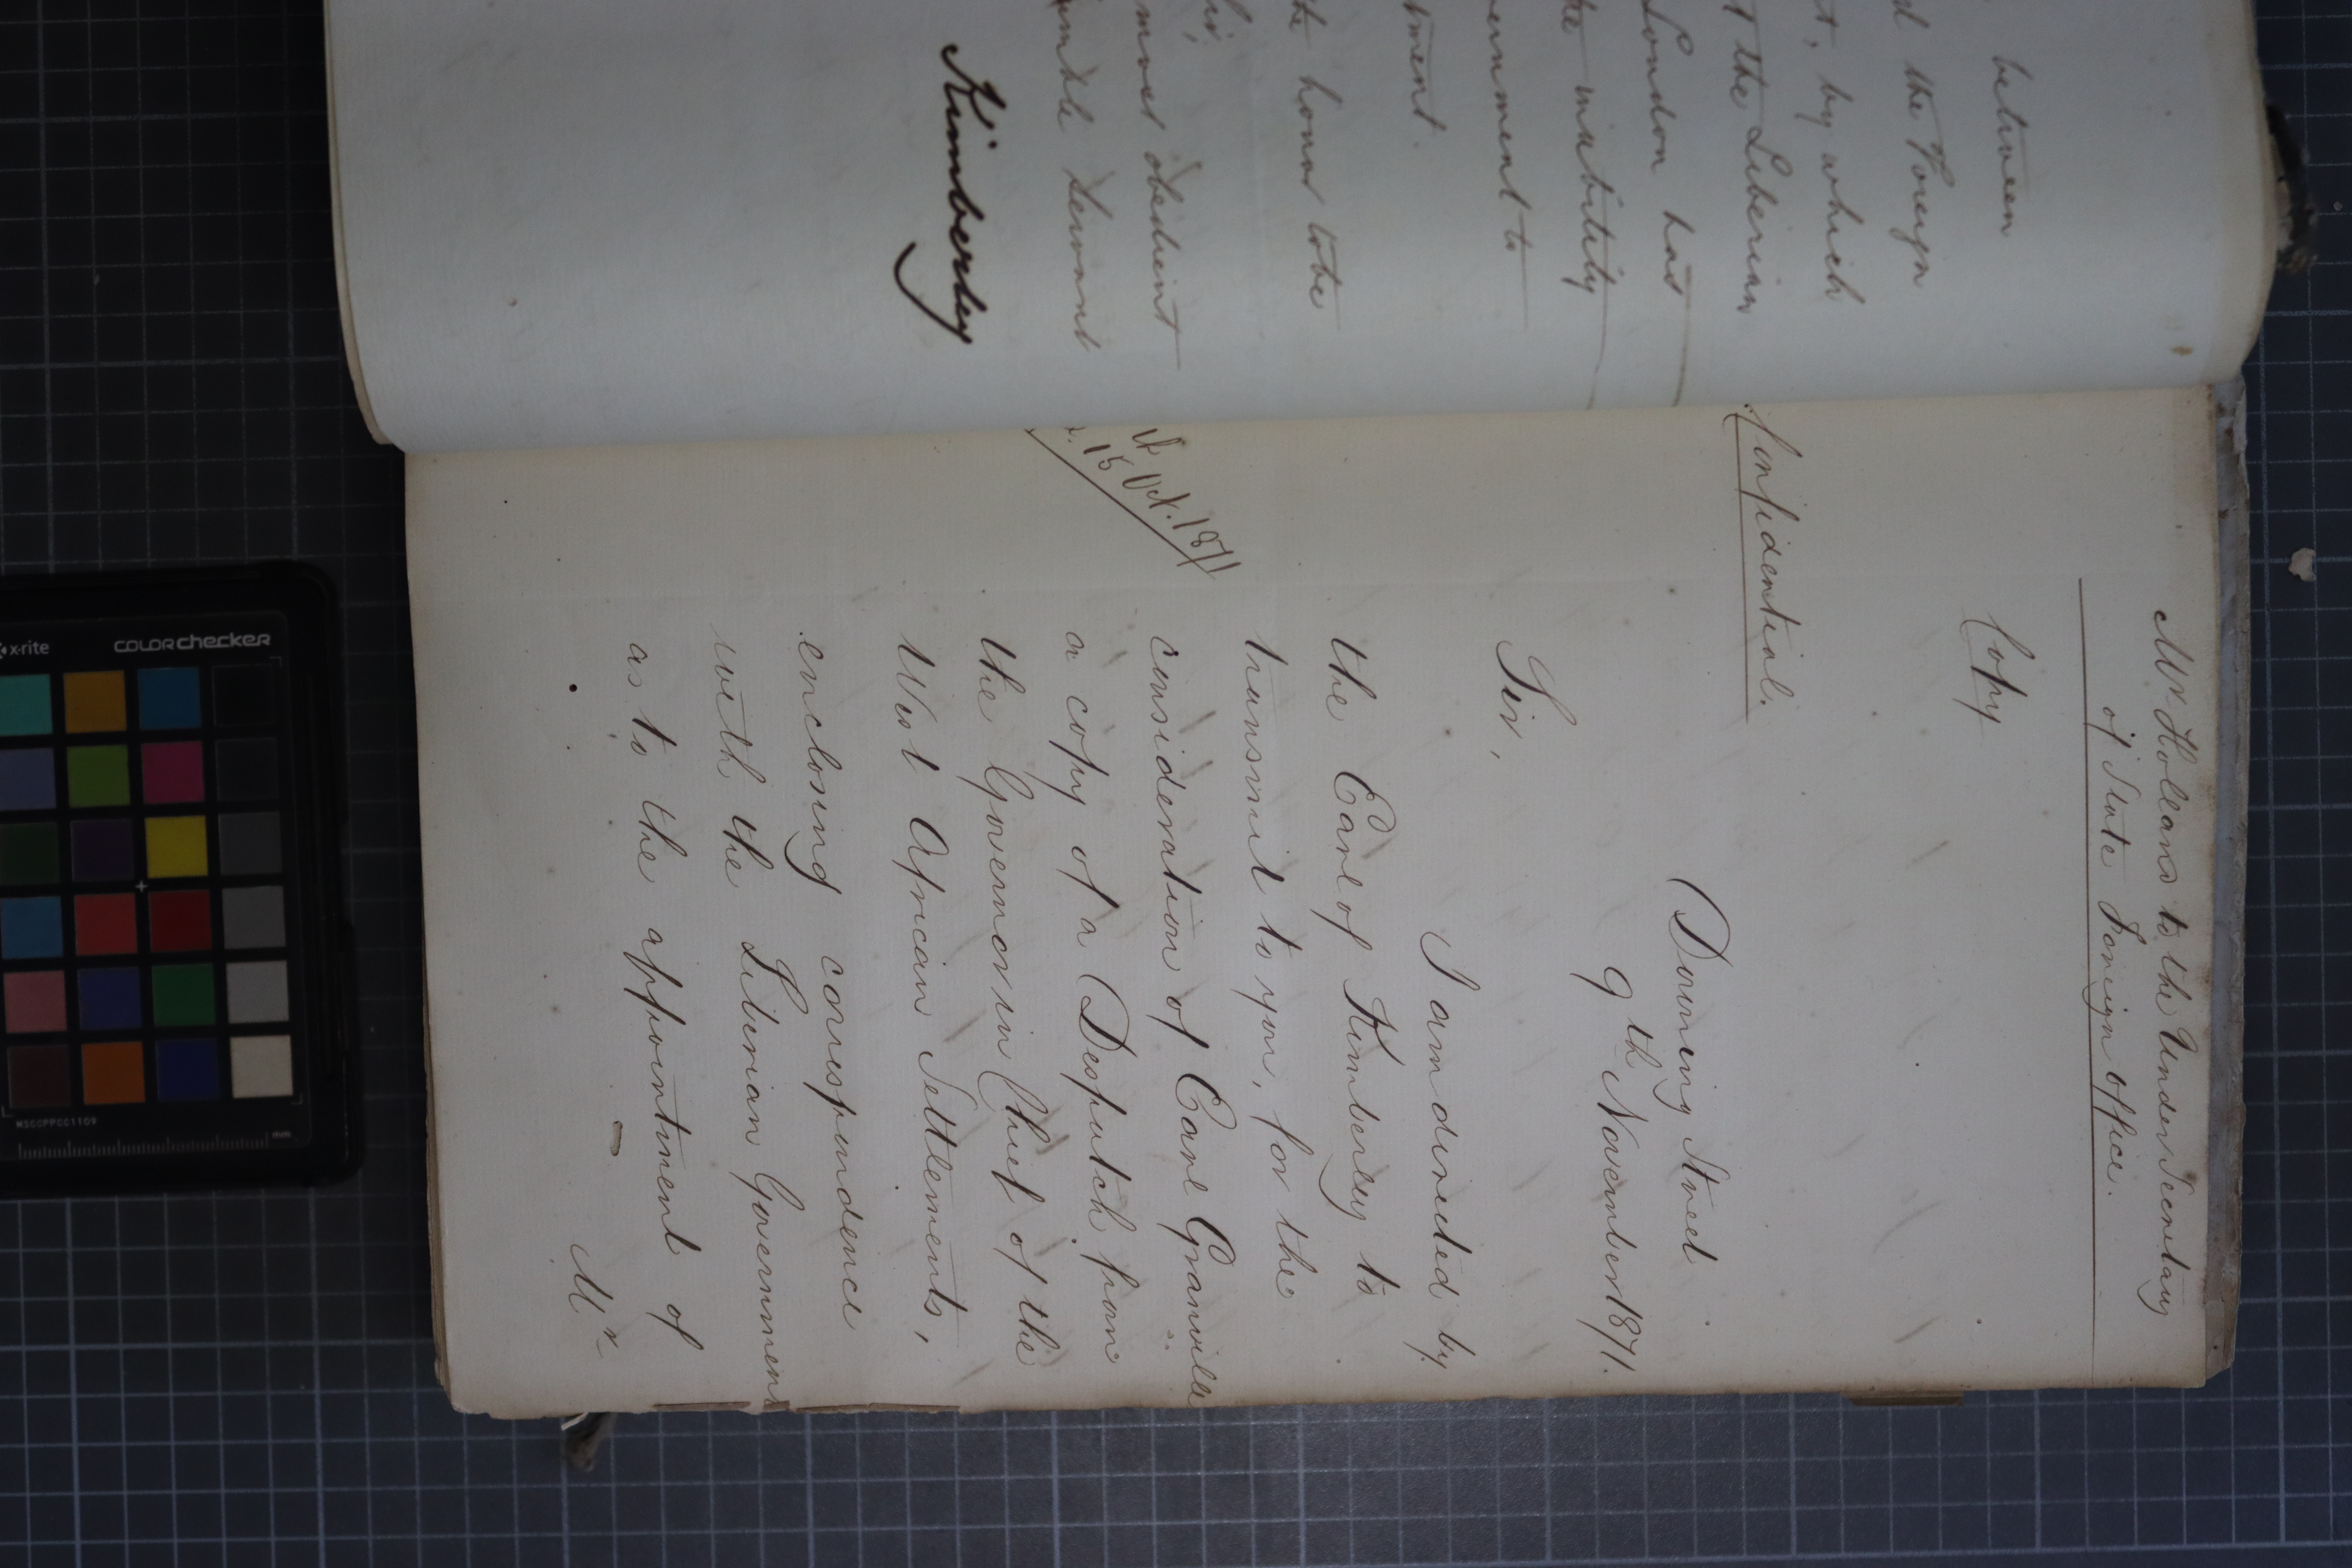 between
the Foreign
t, by which
t the Liberian
London has
inability
ernment to
tment.
honor to be
most obedient
humble Servant
Kimberley
Mr Holland to the Under Secretary
of State Foreign Office.
Copy
Confidential.
Downing Street
9th November 1871.
Sir,
I am directed by
the Earl of Kimberley to
transmit to you, for the
consideration of Earl Granville
15 Oct. 1871
a copy of a Despatch from
the Governor in Chief of the
West African Settlements,
enclosing correspondence
with the Liberian Government
as to the appointment of
Mr
x-rite
colorchecker
MSCCPPCC1109
mm